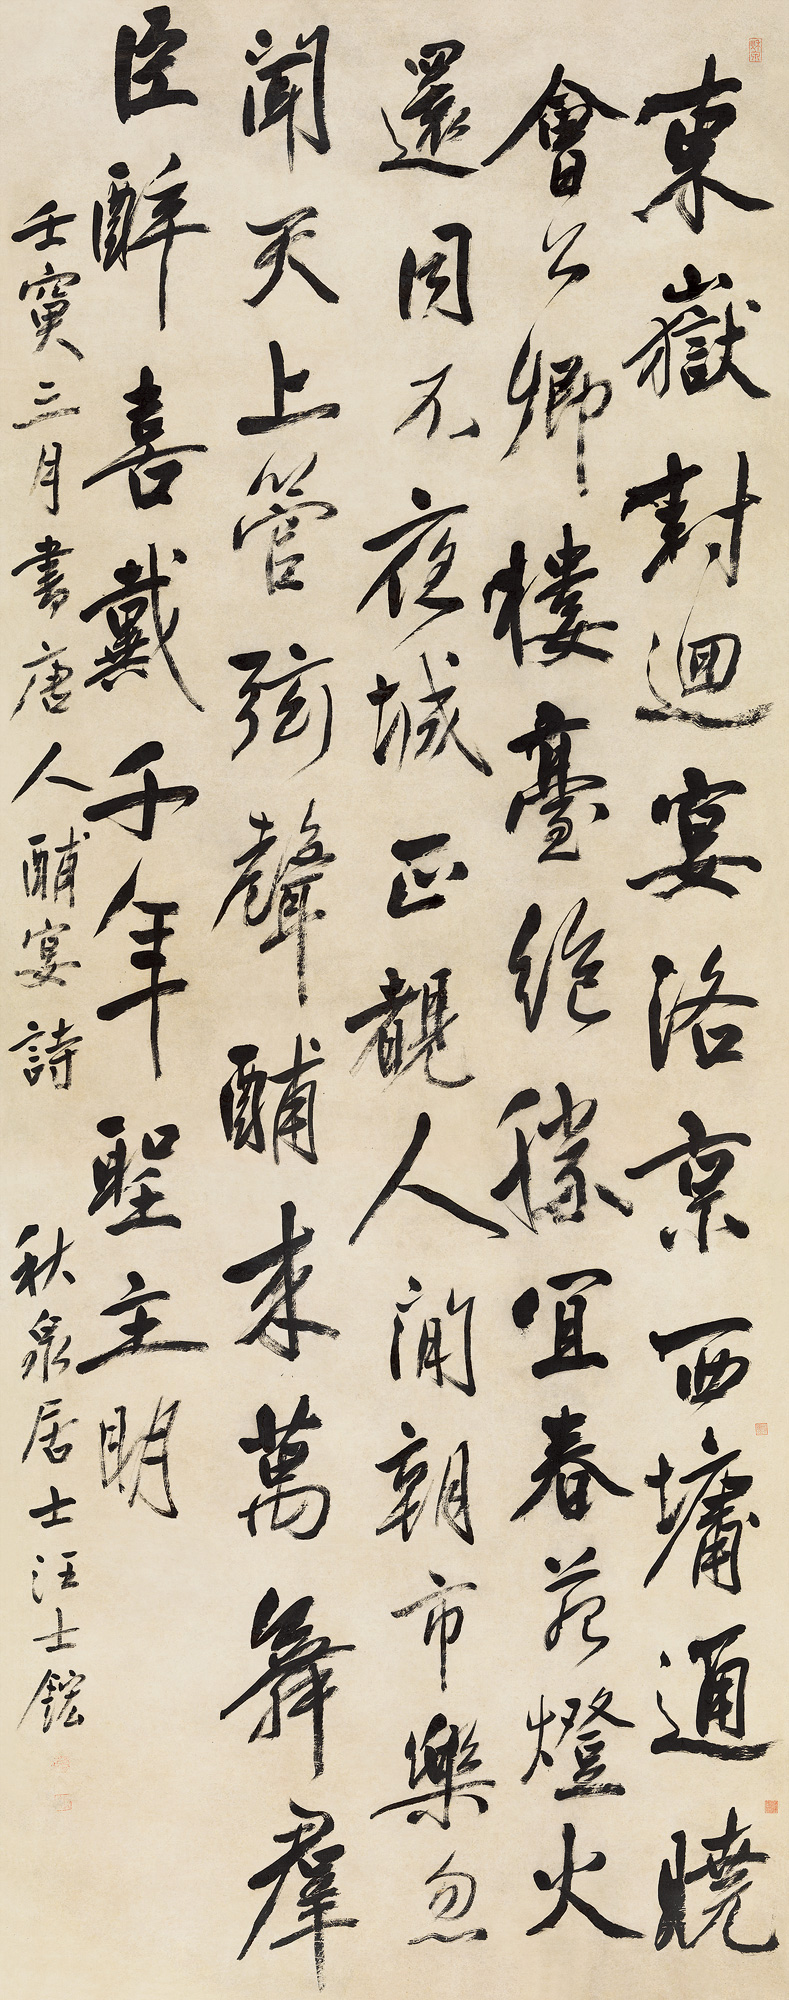 東嶽封迴宴洛京西墉通曉
會公卿樓臺絶勝宜春苑燈火
還同不夜城正覩人間朝市樂忽
聞天上管弦聲酺来萬舞羣
臣醉喜戴千年聖主明
壬寅三月書唐人酺宴詩
秋泉居士汪士鋐